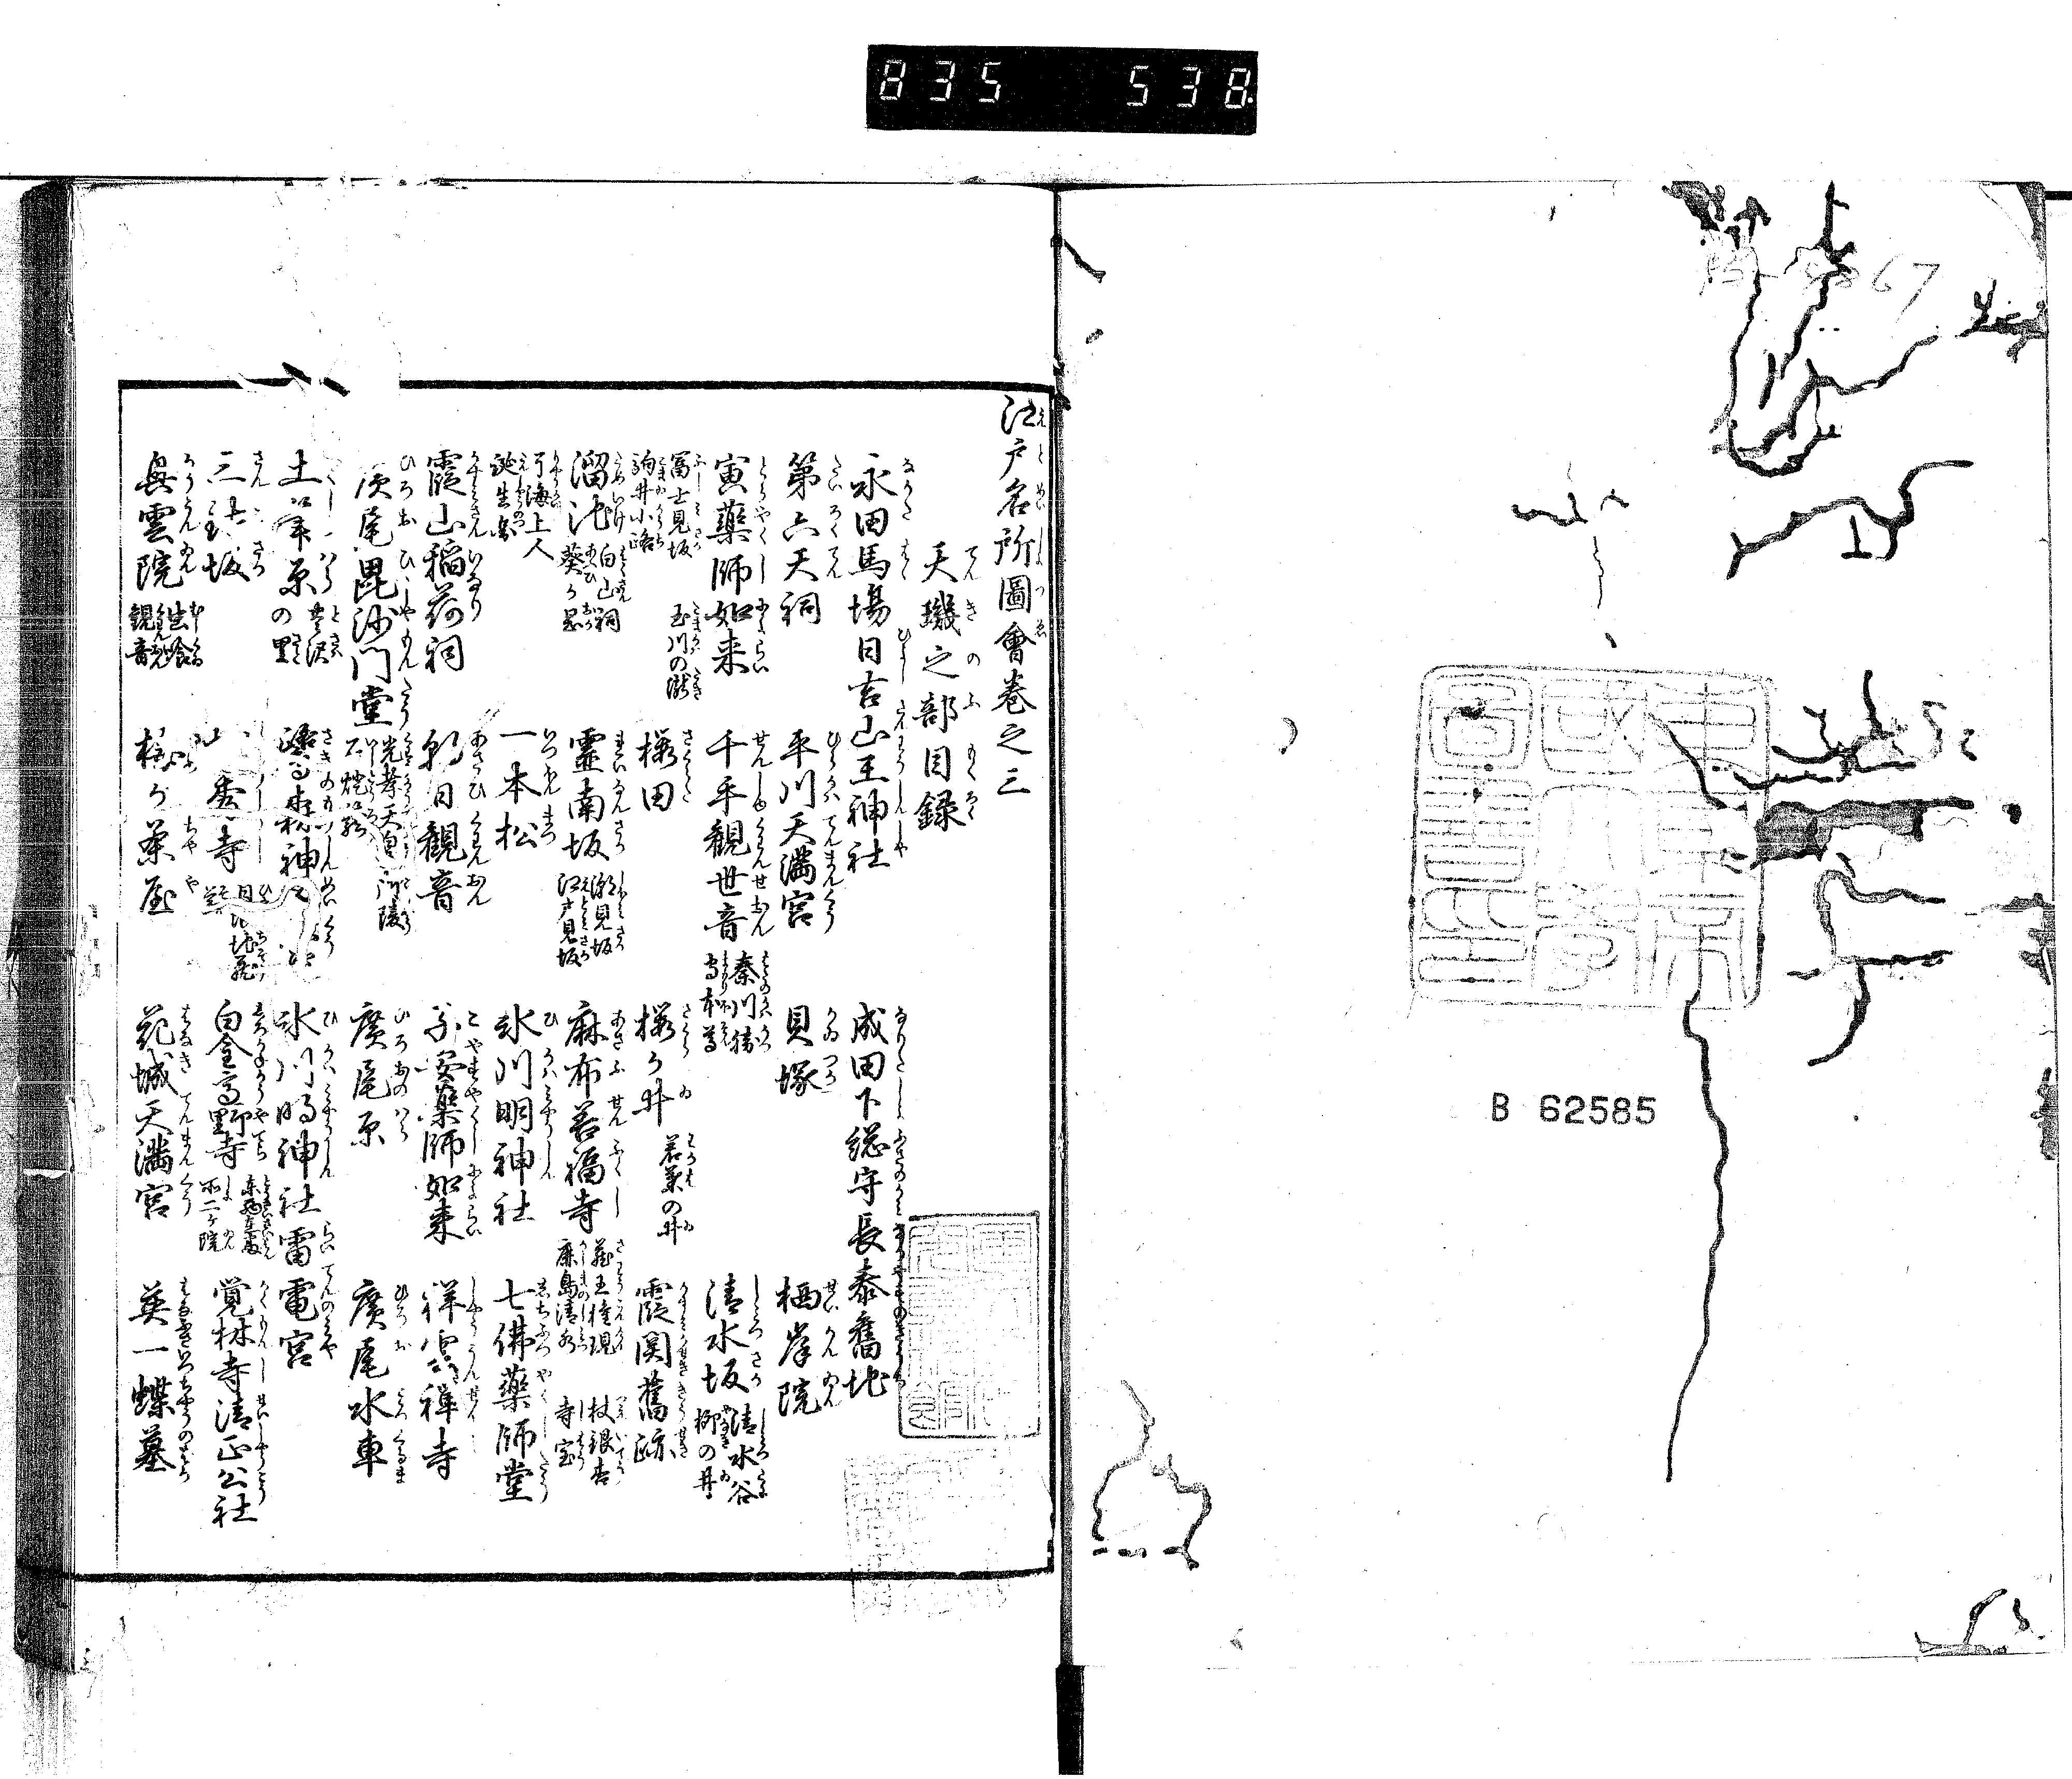 835 538
67
東京帝國大學圖書印
B 62585
江戸名所圖會巻之三
天璣之部目録
永田馬場日吉山王神社 成田下総守長泰舊地
第六天祠 平川天満宮 貝塚 栖岸院
寅薬師如来 千手観世音 秦川勝守本尊 清水坂 清水谷 柳の井
冨士見坂 玉川の瀧 駒井小路 櫻田 櫻か井 若葉の井 霞関舊跡
溜池 白山祠 葵か岡 靈南坂 潮見坂 江戸見坂 麻布善福寺 蔵王権現 杖銀杏 鹿島清水 寺宝
了海上人誕生 一本松 氷川明神社 七佛薬師堂
霞山稲荷祠 朝日観音 子安薬師如来 祥雲禅寺
廣尾毘沙門堂 光孝天皇御陵 石燈籠 廣尾原 廣尾水車
土筆原 豊沢の里 氷川明神社 雷電宮
三鈷坂 寺 白金高野寺 覚林寺清正公社
興雲院 観音 か茶屋 花城天満宮 英一蝶墓